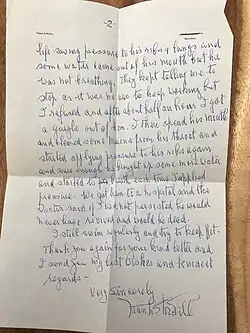 -2-
life saving pressure to his ribs & lungs and
some water came out of his mouth but he
was not breathing, they kept telling me to
stop as it was no use to keep working but
I refused and after about half an hour I got
a gurgle out of him. I then opened his mouth
and cleaned some mucus from his throat and
started applying pressure to his ribs again
and sure enough he brought up some more water
and started to breathe each time I applied
pressure. We got him to a hospital and the
Doctor said if I had not persisted he would
never have revived and would be dead.
I still swim regularly and try to keep fit.
Thank you again for your kind letter and
I send you my best wishes and kindest
regards -
Very Sincerely
Frank